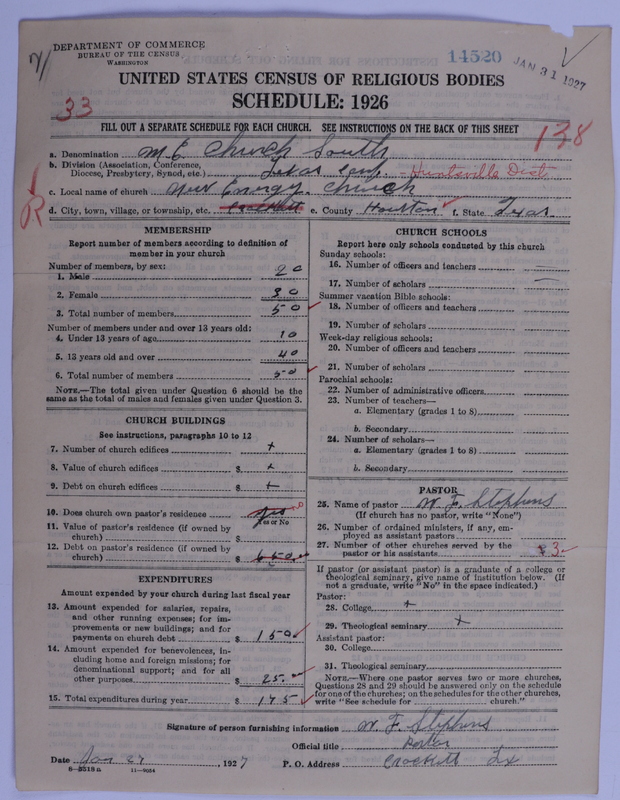 DEPARTMENT OF COMMERCE
BUREAU OF THE CENSUS
WASHINGTON
14520
JAN 31 1927
UNITED STATES CENSUS OF RELIGIOUS BODIES
SCHEDULE: 1926
33
138
FILL OUT A SEPARATE SCHEDULE FOR EACH CHURCH. SEE INSTRUCTIONS ON THE BACK OF THIS SHEET
a. Denomination M. E. Church South
b. Division (Association, Conference, Diocese, Presbytery, Synod, etc.) Texas Conf. - Huntsville Dist
c. Local name of church New Energy Church
R
d. City, town, village, or township, etc. Crockett e. County Houston f. State Texas
MEMBERSHIP
Report number of members according to definition of
member in your church
Number of members, by sex:
1. Male 20
2. Female 30
3. Total number of members 50
Number of members under and over 13 years old:
4. Under 13 years of age 10
5. 13 years old and over 40
6. Total number of members 50
NOTE.—The total given under Question 6 should be the
same as the total of males and females given under Question 3.
CHURCH BUILDINGS
See instructions, paragraphs 10 to 12
7. Number of church edifices +
8. Value of church edifices $ +
9. Debt on church edifices $ +
10. Does church own pastor's residence yes no
Yes or No
11. Value of pastor's residence (if owned by
church) $
12. Debt on pastor's residence (if owned by
church) $
EXPENDITURES
Amount expended by your church during last fiscal year
13. Amount expended for salaries, repairs,
and other running expenses; for im-
provements or new buildings; and for
payments on church debt $ 150
14. Amount expended for benevolences, in-
cluding home and foreign missions; for
denominational support; and for all
other purposes $ 25.
15. Total expenditures during year $ 175
CHURCH SCHOOLS
Report here only schools conducted by this church
Sunday schools:
16. Number of officers and teachers
17. Number of scholars
Summer vacation Bible schools:
18. Number of officers and teachers
19. Number of scholars
Week-day religious schools:
20. Number of officers and teachers
21. Number of scholars
Parochial schools:
22. Number of administrative officers
23. Number of teachers—
a. Elementary (grades 1 to 8)
b. Secondary
24. Number of scholars—
a. Elementary (grades 1 to 8)
b. Secondary
PASTOR
25. Name of pastor W. F. Stephens
(If church has no pastor, write "None")
26. Number of ordained ministers, if any, em-
ployed as assistant pastors
27. Number of other churches served by the
pastor or his assistants 3
If pastor (or assistant pastor) is a graduate of a college or
theological seminary, give name of institution below. (If
not a graduate, write "No" in the space indicated.)
Pastor:
28. College +
29. Theological seminary +
Assistant pastor:
30. College
31. Theological seminary
NOTE.—Where one pastor serves two or more churches,
Questions 28 and 29 should be answered only on the schedule
for one of the churches; on the schedules for the other churches,
write "See schedule for church."
Signature of person furnishing information W. F. Stephens
Official title Pastor
Date Jan 27, 1927 P. O. Address Crockett Tx
8-5518 a 11-9054